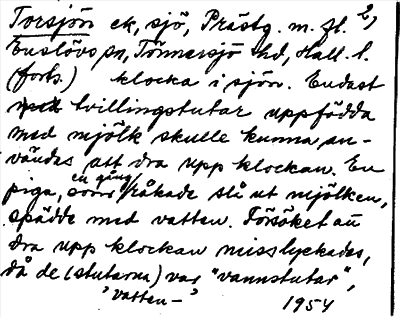 Torsjön ek, sjö, Prästg. m. fl. 2,
Enslövs sn, Tönnersjö hd, Hall. l.
(forts.) klocka i sjön. Endast
tvillingstutar uppfödda
med mjölk skulle kunna an-
vändas att dra upp klockan. En
piga, en gång råkade slå ut mjölken,
spädde med vatten. Försöket att
dra upp klockan misslyckades,
då de (stutarna) var "vannstutar",
'vatten-' 1954